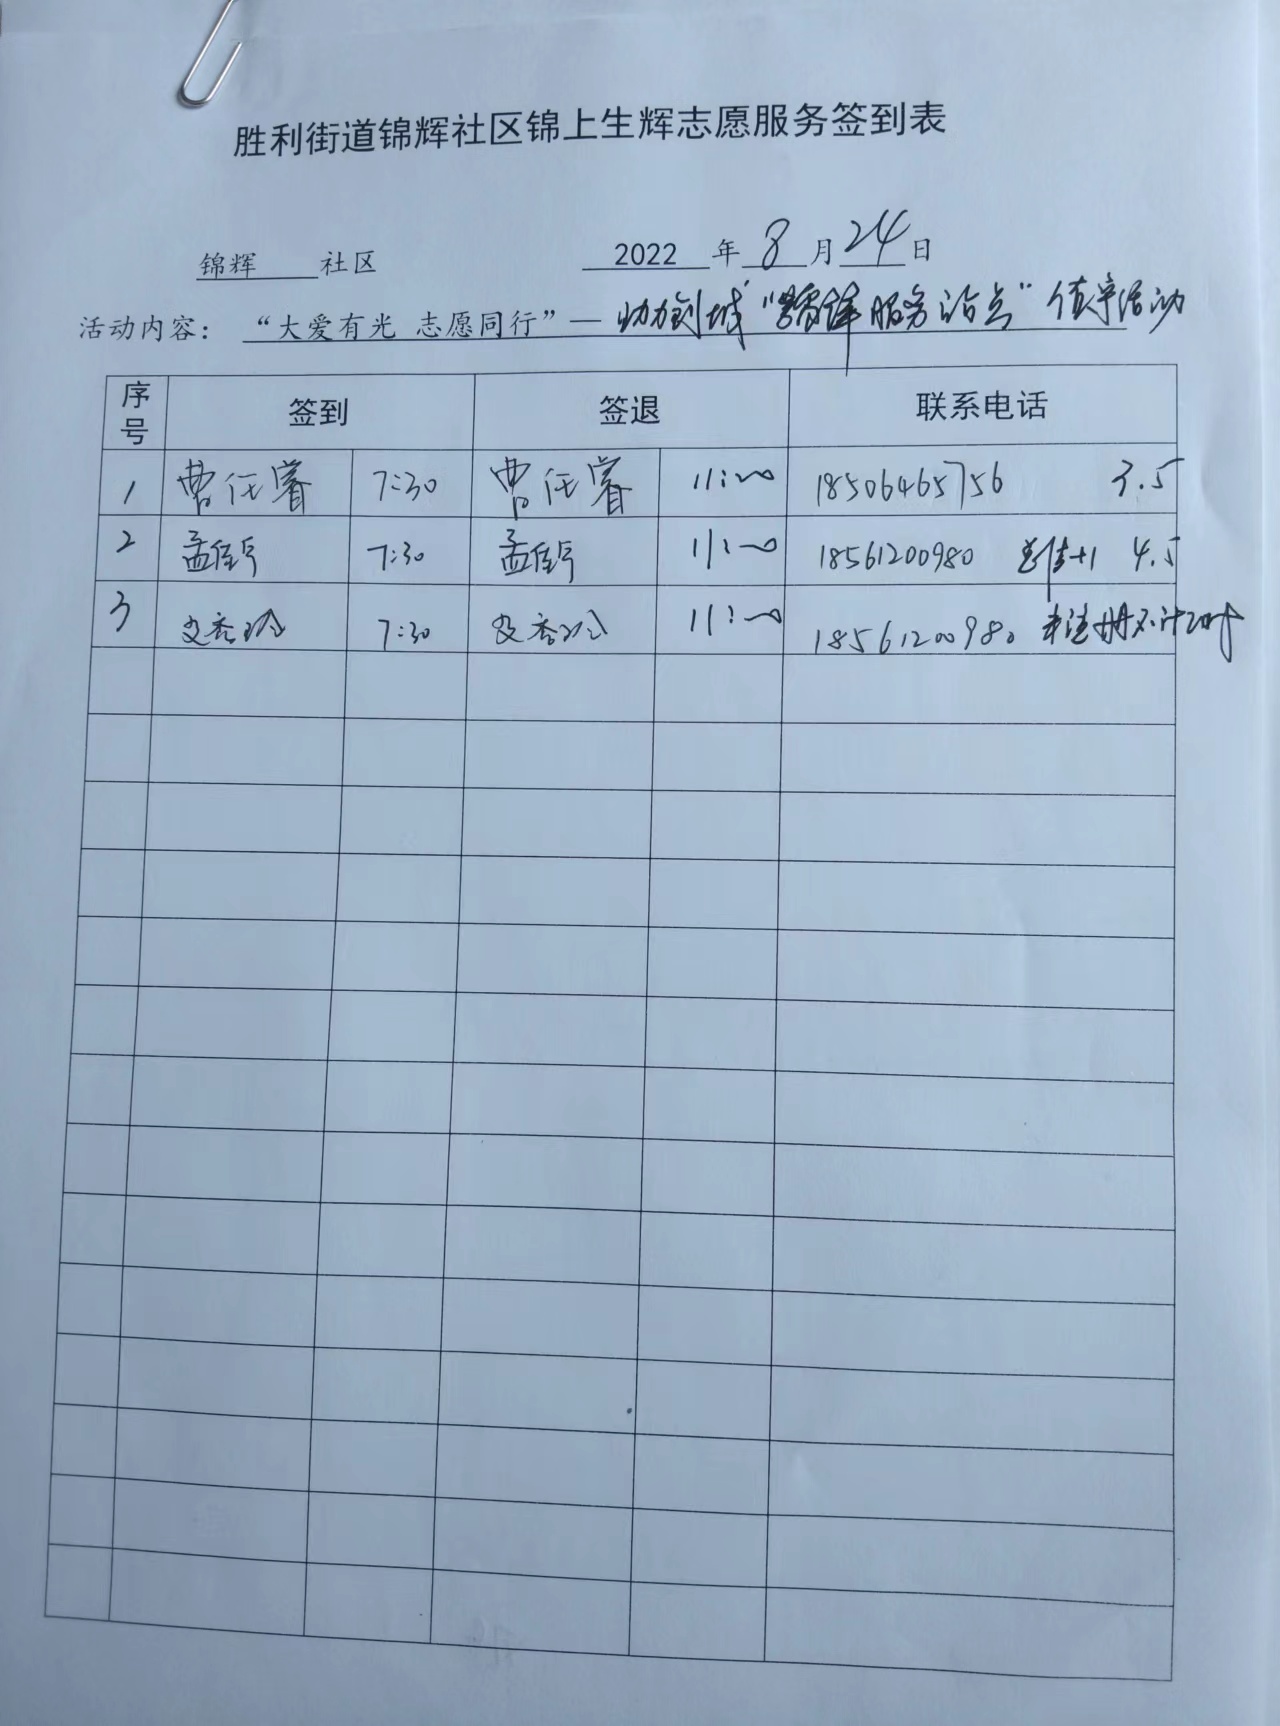 胜利街道锦辉社区锦上生辉志愿服务签到表
锦辉 社区 2022 年 8 月 24 日
活动内容：“大爱有光 志愿同行”—助力创城“学雷锋服务站点”值守活动
序号 签到 签退 联系电话
1 曹任睿 7:30 曹任睿 11:00 18506465756 3.5
2 孟 7:30 孟 11:00 18561200980 +1 4.5
3 7:30 11:00 18561200980 未注册不计时